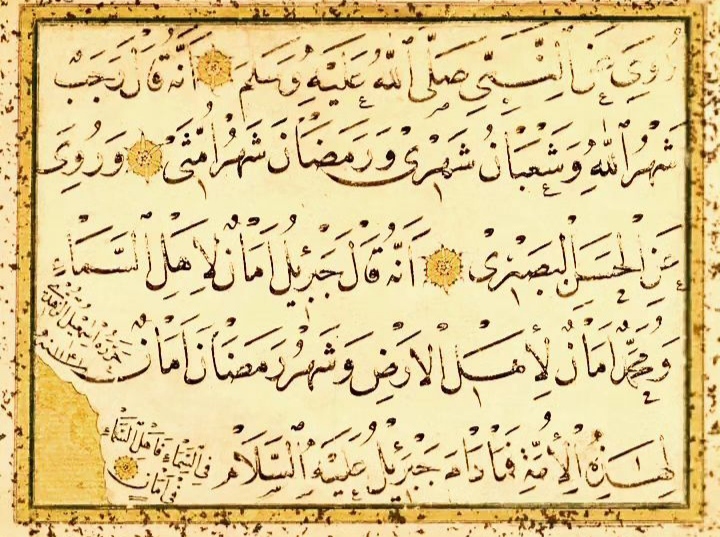 رُوِيَ عَنِ النَّبِيِّ صَلَّى اللهُ عَلَيْهِ وَسَلَّمَ اَنَّهُ قَالَ رَجَبُ
شَهْرُ اللهِ وَشَعْبَانُ شَهْرِى وَرَمَضَانَ شَهْرُ اُمَّتِى وَرُوِىَ
عَنِ الْحَسَنِ الْبَصْرِىْ اَنَّهُ قَالَ جَبْرَئِيلُ اَمَانٌ لِاَهْلِ السَّمَاءِ
وَمُحَمَّدٌ اَمَانٌ لِأَهْلِ الْاَرْضِ وَشَهْرُ رَمَضَانَ اَمَانٌ
لِهٰذِهِ الْأُمَّةِ فَمَادَامَ جَبْرَئِيلُ عَلَيْهِ السَّلَامْ
فِى السَّمَاءِ فَاَهْلُ السَّمَاءِ
فِى اَمَانٍ
حَرَّرَهُ اِسْمٰعِيلُ الزُّهْدِى